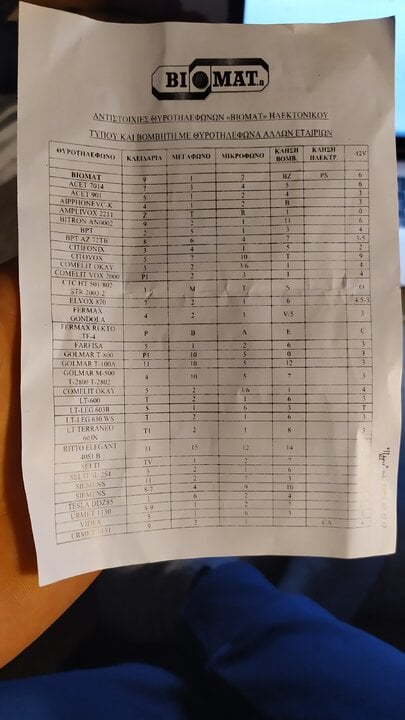 BIOMAT.
ΑΝΤΙΣΤΟΙΧΙΕΣ ΘΥΡΟΤΗΛΕΦΩΝΩΝ «BIOMAT» ΗΛΕΚΤΟΝΙΚΟΥ
ΤΥΠΟΥ ΚΑΙ ΒΟΜΒΗΤΗ ΜΕ ΘΥΡΟΤΗΛΕΦΩΝΑ ΑΛΛΩΝ ΕΤΑΙΡΙΩΝ
ΘΥΡΟΤΗΛΕΦΩΝΟ ΚΛΕΙΔΑΡΙΑ ΜΕΓΑΦΩΝΟ ΜΙΚΡΟΦΩΝΟ ΚΛΗΣΗ ΒΟΜΒ. ΚΛΗΣΗ ΗΛΕΚΤΡ -12V
BIOMAT 9 1 2 BZ PS 6
ACET 7014 7 3 4 5 6
ACET 901 5 1 2 4 3
AIPPHONEVC-K 4 1 2 B 3
AMPLIVOX 2211 Z T R 1 0
BITRON AN0002 9 2 1 6
BPT 2 5 1 3 4
BPT AZ 72TB 8 6 4 7 3-5
CITIFONIX 3 4 1 5 2
CITOVOX 5 7 10 T 9
COMELIT OKAY 5 2 3/6 1 4
COMELIT VOX 2000 P1 2 3 1 4
CTC HT 501/802
STR 2003-2 1 M T S O
ELVOX 870 7 2 1 6 4-5-3
FERMAX
GONDOLA 4 2 1 V/5 3
FERMAX REKTO
TF-4 P B A E C
FARFISA 5 1 2 6 3
GOLMAR T-800 P1 10 5 0 3
GOLMAR T-100A 11 10 5 12 3
GOLMAR M-500
T-2800 T-2802 4 10 5 7 3
COMELIT OKAY 5 2 3/6 1 4
LT-600 T 2 1 6 3
LT-LEG 603R 5 1 6 3 T
LT-LEG 630 WS T 2 1 6 3
LT TERRANEO
603N T1 2 1 8 3
RITTO ELEGANT
4051 B 11 15 12 14
SELTI TV 1 2 7
SELTI SL 254 5 2 1 6
SIEMENS 11 2 3
SIEMENS 8-7 4 9 10
TESLA DDZ85 1 6 2 4
URMET 1130 8-9 1 2
VIDEX 5 1 6 3
URMET 1131 9 2 CA 6